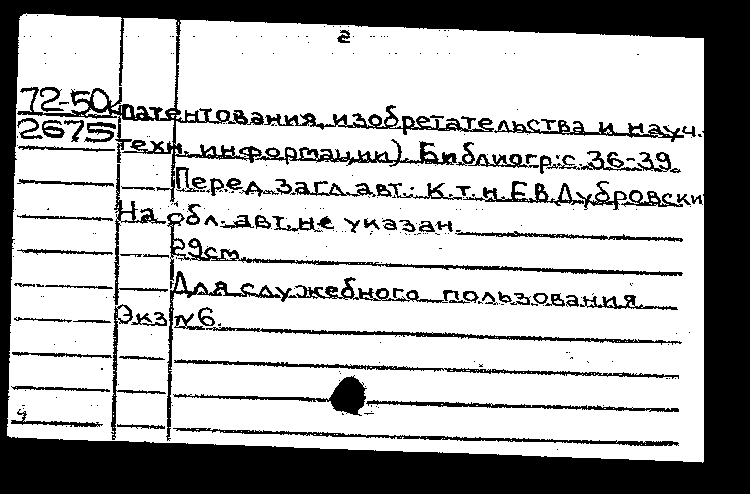 2
72-50к патентования, изобретательства и науч.-
2675 техн. информации). Библиогр: с. 36-39.
Перед загл. авт.: к.т.н. Е.В. Дубровски
На обл. авт. не указан.
29см.
Для служебного пользования
Экз N6.